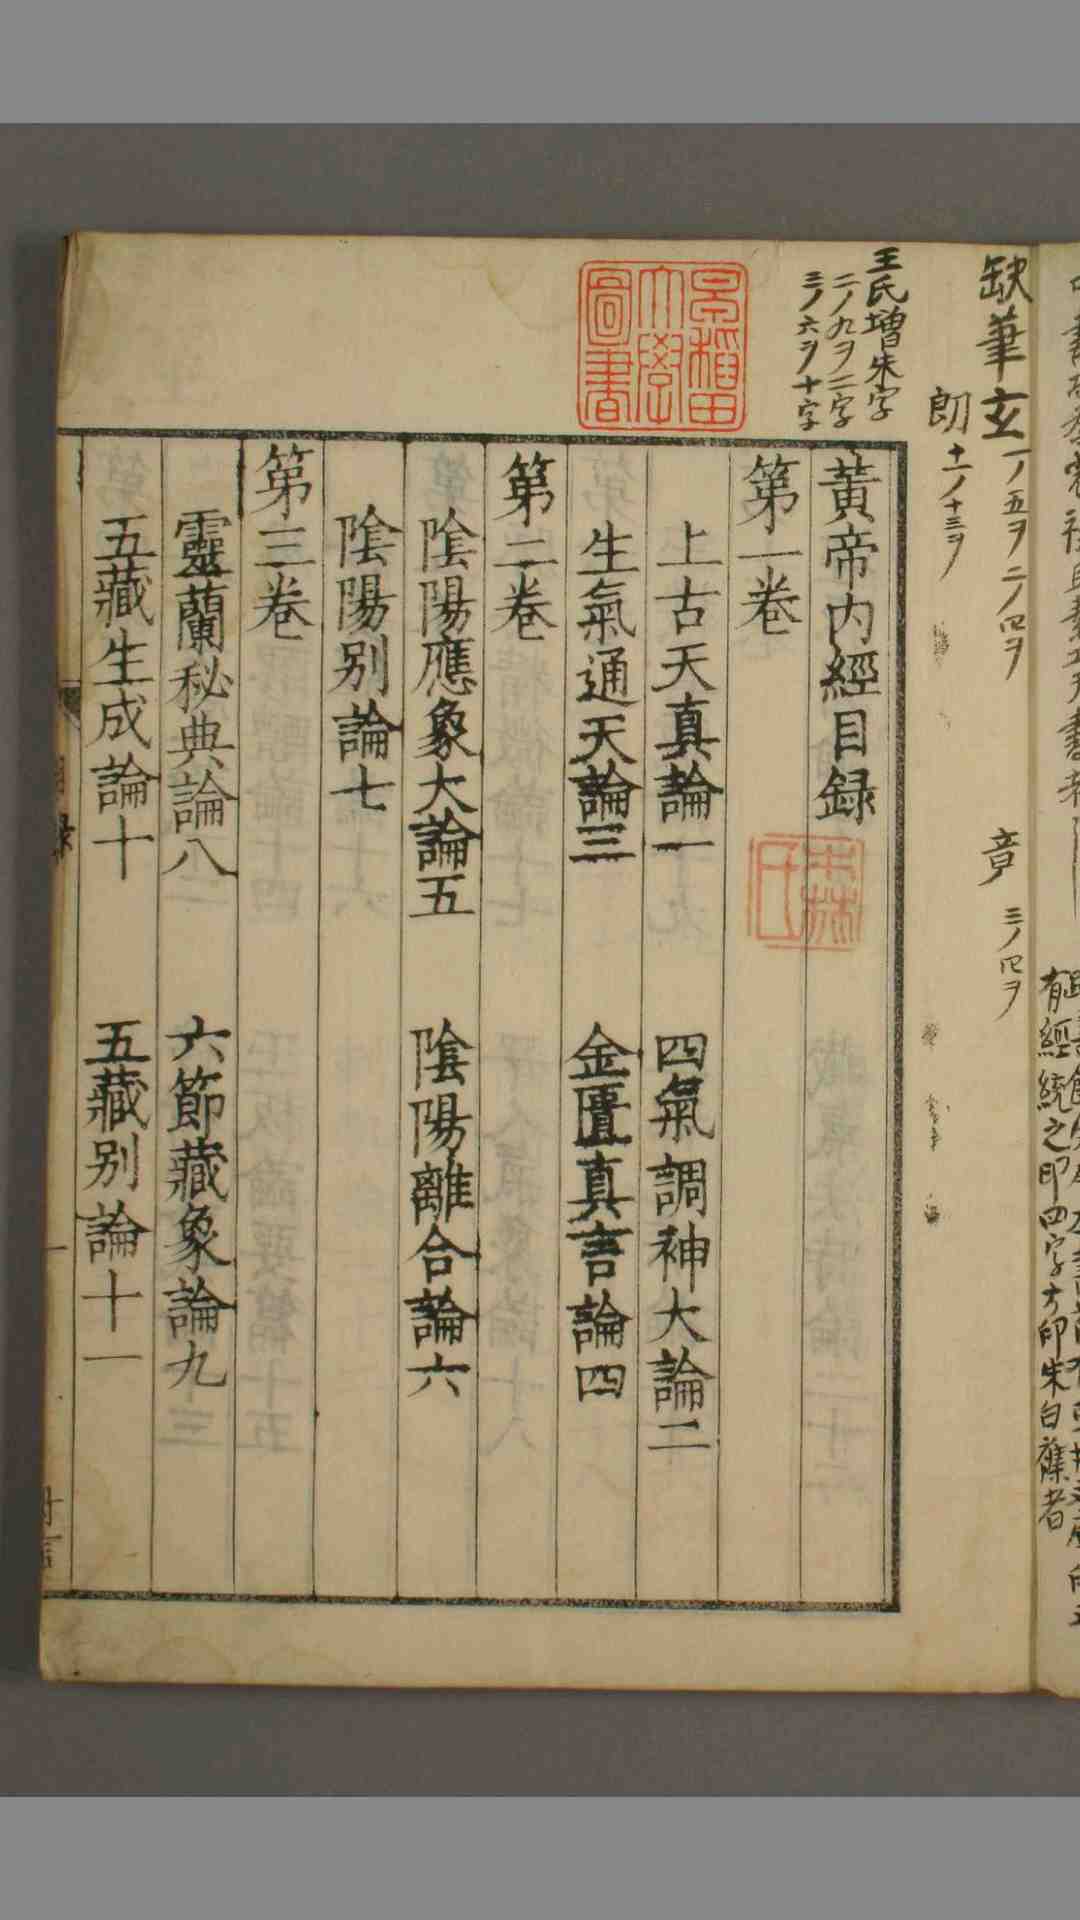 有經統之印四字方印朱白蕉者
缺筆玄一ノ五ヲ二ノ四ヲ
章三ノ四ヲ
朗十一ノ十三ヲ
王氏增朱字
二ノ九ヲ二字
三ノ六ヲ十字
黃帝内經目録
第一卷
上古天真論一 四氣調神大論二
生氣通天論三 金匱真言論四
第二卷
陰陽應象大論五 陰陽離合論六
陰陽别論七
第三卷
靈蘭秘典論八 六節藏象論九
五藏生成論十 五藏别論十一
早稲田大學圖書
森氏